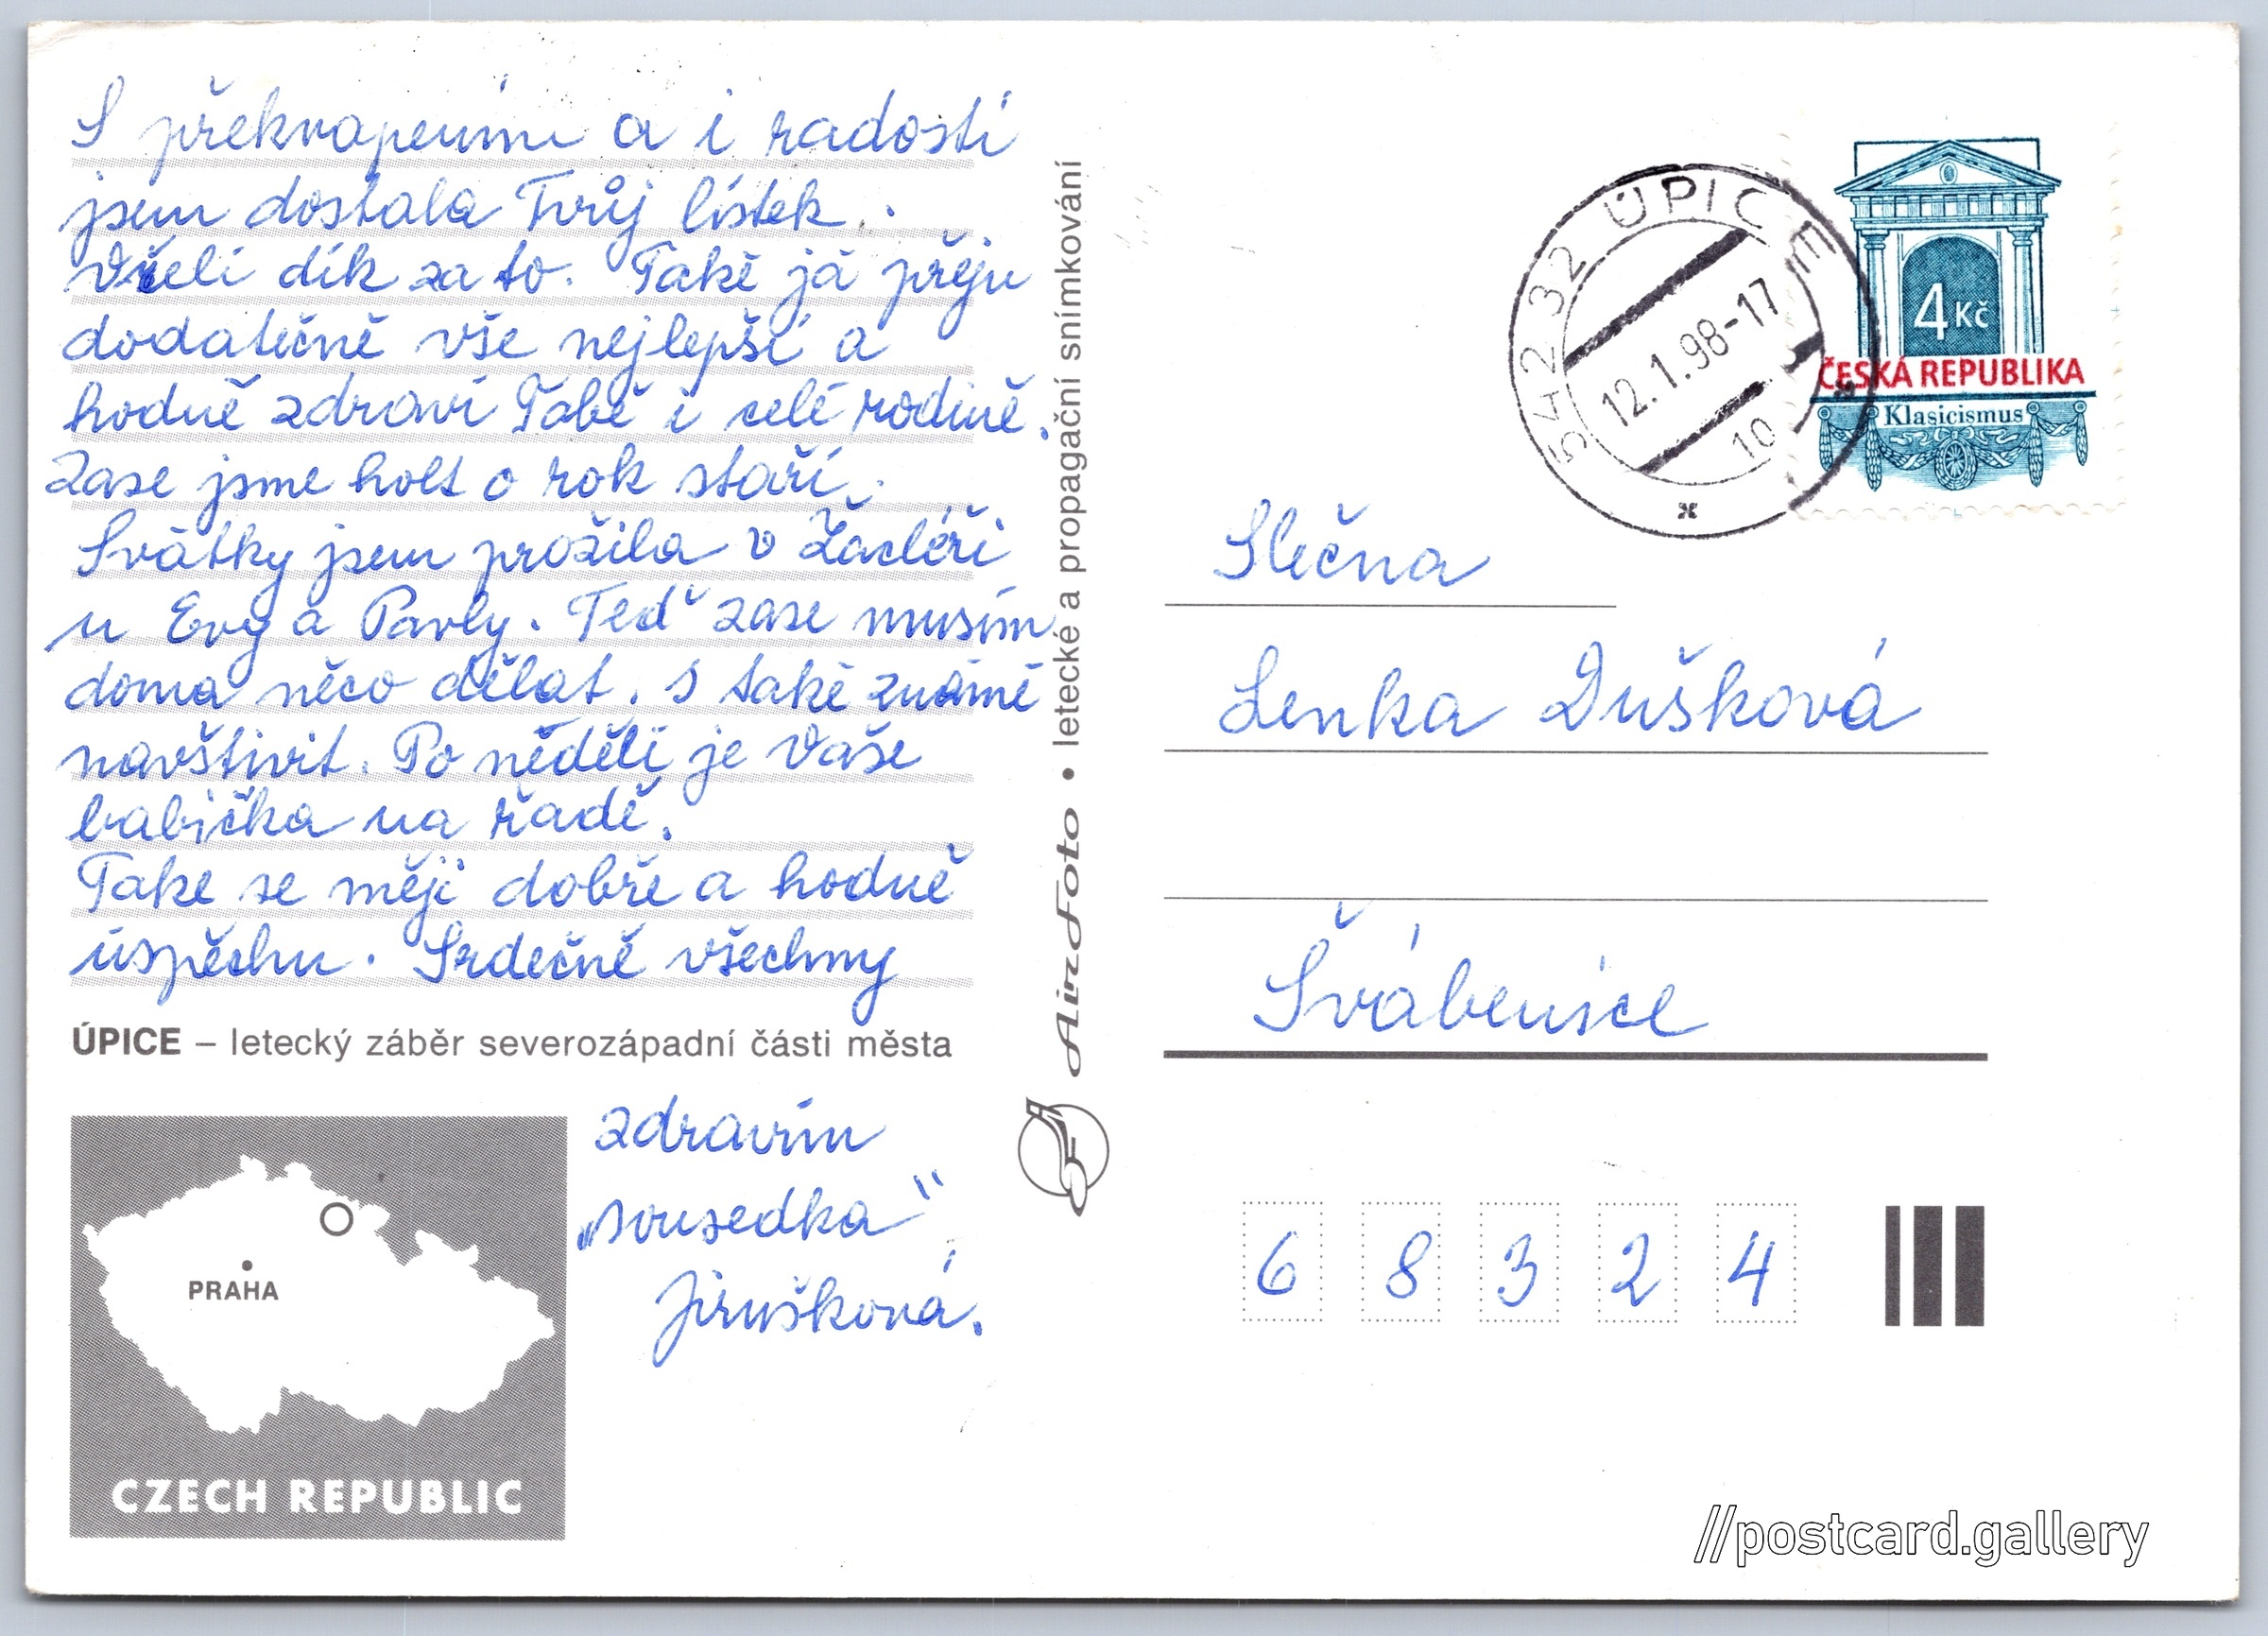 S překvapením a i radostí
jsem dostala Tvůj lístek.
Vřelí dík za to. Také já přeju
dodatečně vše nejlepší a
hodně zdraví Tobě i celé rodině.
Zase jsme holt o rok staří.
Svátky jsem prožila v Žacléři
u Evy a Pavly. Teď zase musím
doma něco dělat. I také známé
navštívit. Po něděli je Vaše
babička na řadě.
Take se měj dobře a hodně
úspěchu. Srdečně všechny
ÚPICE – letecký záběr severozápadní části města
zdravím
„sousedka"
Jirušková.
PRAHA
CZECH REPUBLIC
AirFoto • letecké a propagační snímkování
542 32 ÚPICE
12.1.98-17
10
4 Kč
ČESKÁ REPUBLIKA
Klasicismus
Slečna
Lenka Dušková
Švábenice
6 8 3 2 4
//postcard.gallery